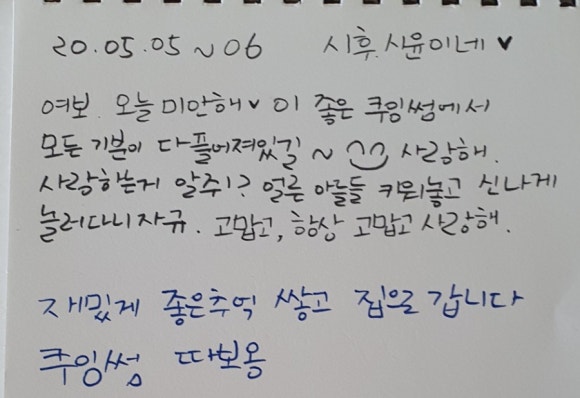 20.05.05~06 시후.시윤이네♥
여보. 오늘 미안해♥ 이 좋은 쿠잉썸에서
모든 기분이 다 풀어져있길~ 사랑해.
사랑하는거 알쥬!? 얼른 아들들 키워놓고 신나게
놀러다니자규. 고맙고, 항상 고맙고 사랑해.
재밌게 좋은추억 쌓고 집으로 갑니다
쿠잉썸 따보옹